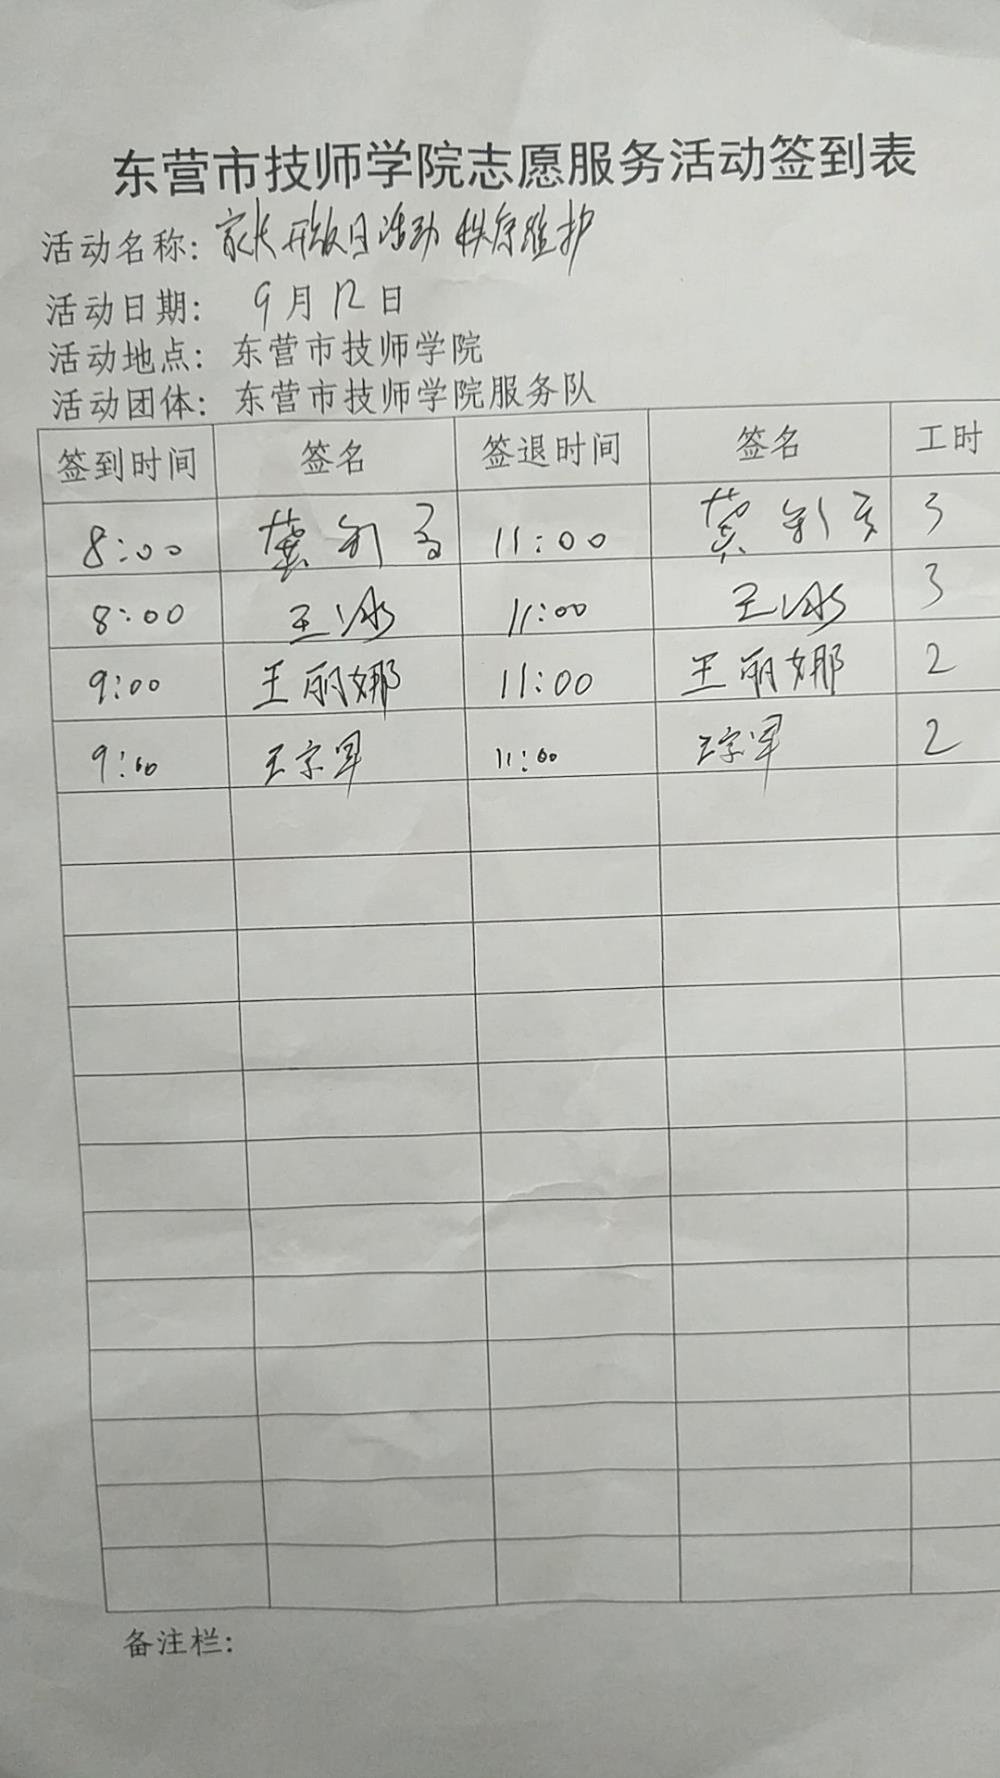 东营市技师学院志愿服务活动签到表
活动名称：家长开放日活动 秩序维护
活动日期： 9月12日
活动地点：东营市技师学院
活动团体：东营市技师学院服务队
签到时间 签名 签退时间 签名 工时
8:00 11:00 3
8:00 王冰 11:00 王冰 3
9:00 王丽娜 11:00 王丽娜 2
9:00 11:00 2
备注栏：